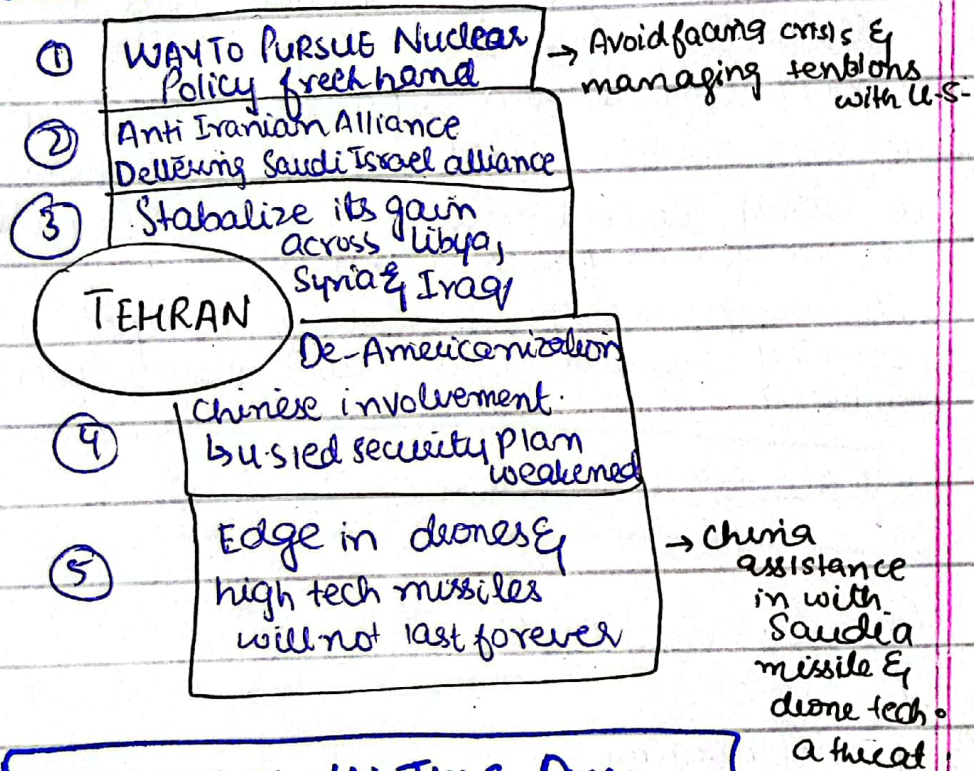 ①
WAY TO PURSUE Nuclear
Policy freehhand
→ Avoid facing crisis &
managing tensions
with U.S.
②
Anti Iranian Alliance
Dettering Saudi Israel alliance
③
Stabalize its gain
across libya,
Syria & Iraq
TEHRAN
De-Americanization
④
Chinese involvement.
↳ U.S led security Plan
weakened
⑤
Edge in drones &
high tech missiles
will not last forever
→ China
assistance
in with
Saudia
missile &
drone tech.
a threat.